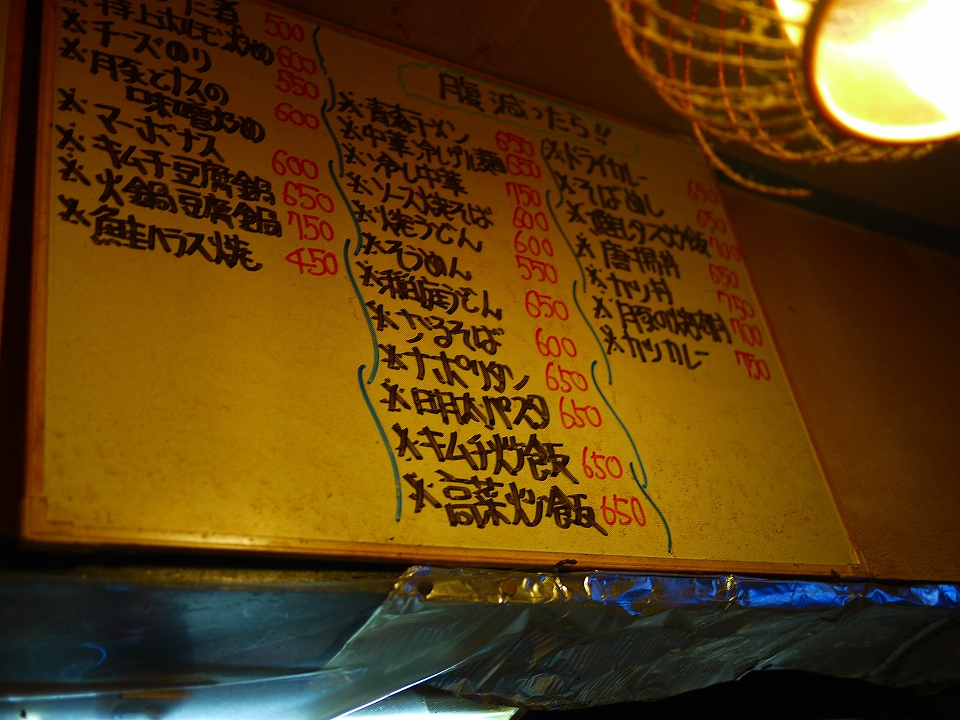 た煮 500
※特上ホルモン炒め 600
※チーズのり 550
※豚とナスの
味噌炒め 600
※マーボナス 600
※キムチ豆腐鍋 650
※火鍋豆腐鍋 750
※鮭ハラス焼 450
腹減ったら!!
※青森ラーメン 650
※中華冷し 麺 650
※冷し中華 750
※ソース焼そば 600
※焼うどん 600
※そうめん 550
※稲庭うどん 650
※ざるそば 600
※ナポリタン 650
※明太パスタ 650
※キムチ炒飯 650
※高菜炒飯 650
※ドライカレー 650
※そばめし 650
※鮭レタス炒飯 700
※唐揚丼 650
※カツ丼 750
※豚の焼肉丼 700
※カツカレー 750